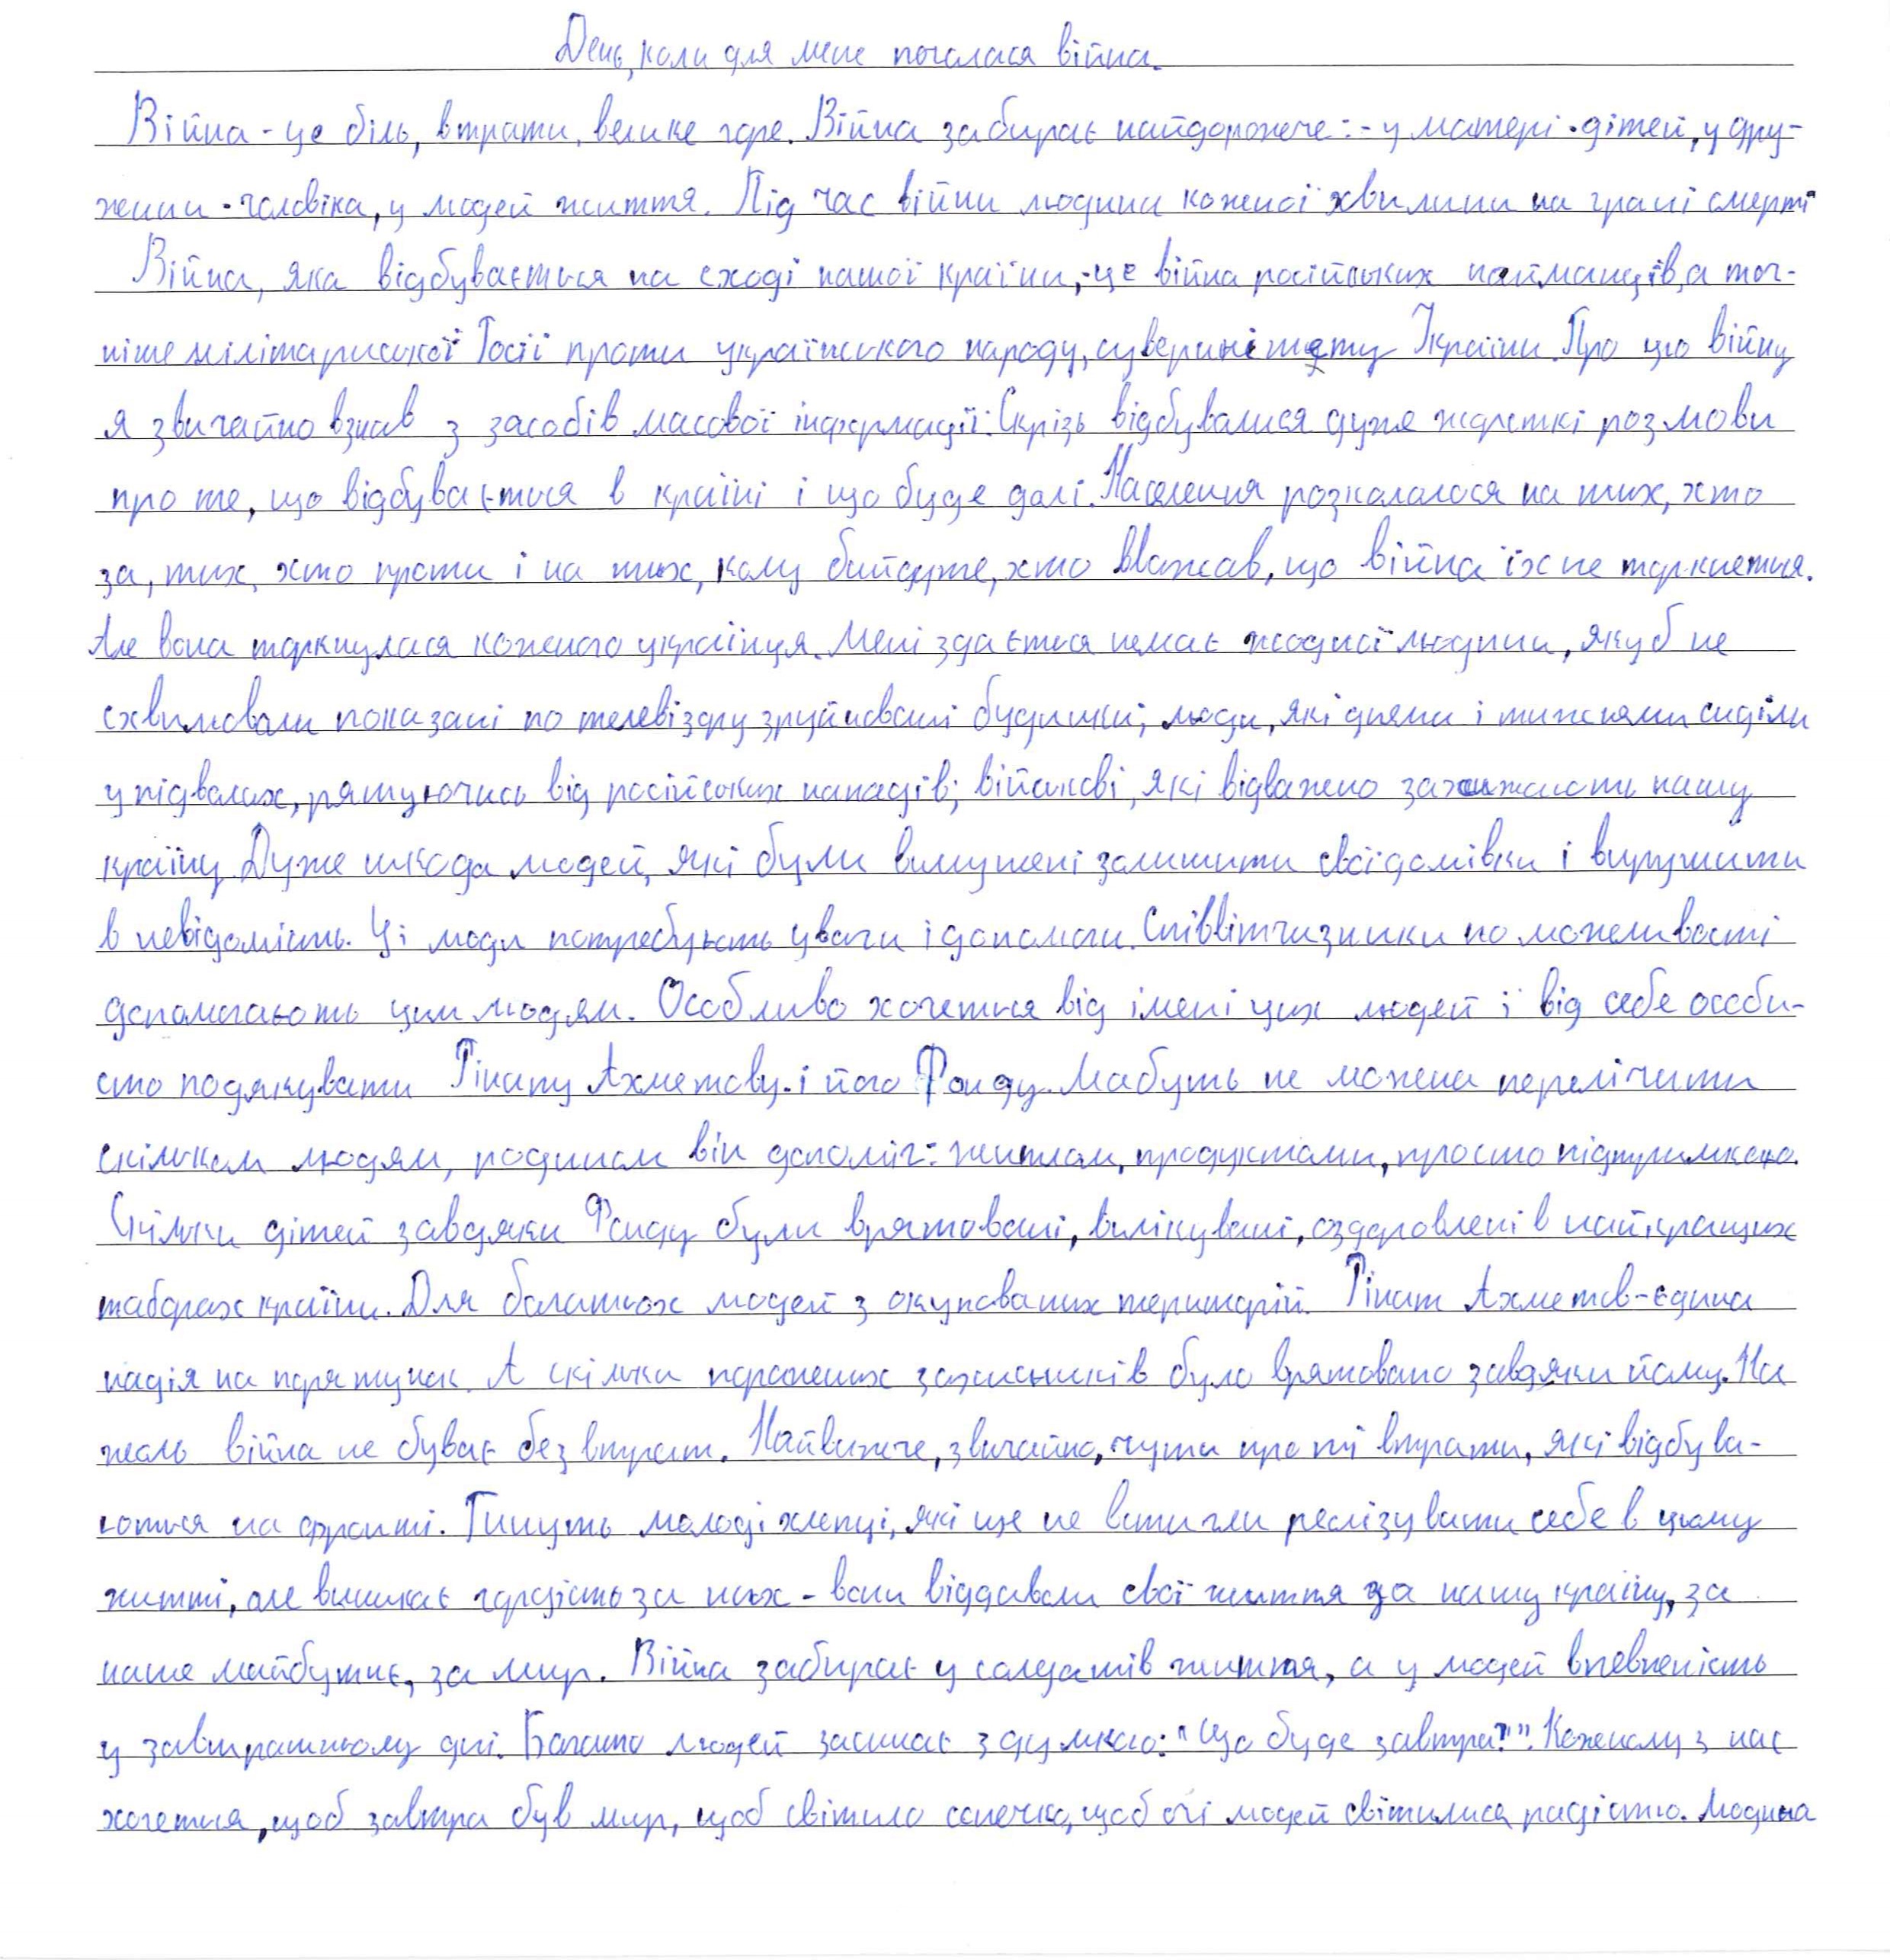 День, коли для мене почалася війна.
Війна - це біль, втрати, велике горе. Війна забирає найдорожче: - у матері - дітей, у дру-
жини - чоловіка, у людей життя. Під час війни людини кожної хвилини на грані смерті
Війна, яка відбувається на сході нашої країни, - це війна російських найманців, а точ-
ніше мілітариської Росії проти українського народу, суверинітету України. Про цю війну
я звичайно взнав з засобів масової інформації. Скрізь відбувалися дуже жорсткі розмови
про те, що відбувається в країні і що буде далі. Населення розкололося на тих, хто
за, тих, хто проти і на тих, кому байдуже, хто вважав, що війна їх не торкнеться.
Але вона торкнулася кожного українця. Мені здається немає жодної людини, яку б не
схвилювали показані по телевізору зруйновані будинки; люди, які днями і тижнями сиділи
у підвалах, рятуючись від російських нападів; військові, які відважно захищають нашу
країну. Дуже шкода людей, які були вимушені залишити свої домівки і вирушити
в невідомість. Ці люди потребують уваги і допомоги. Співвітчизники по можливості
допомагають цим людям. Особливо хочеться від імені цих людей і від себе особи-
сто подякувати Рінату Ахметову і його Фонду. Мабуть не можна перелічити
скільком людям, родинам він допоміг: житлом, продуктами, просто підтримкою.
Скільки дітей завдяки Фонду були врятовані, вилікувані, оздоровлені в найкращих
таборах країни. Для багатьох людей з окупованих територій Рінат Ахметов - єдина
надія на порятунок. А скільки поранених захисників було врятовано завдяки йому. На
жаль війна не буває без втрат. Найважче, звичайно, чути про ті втрати, які відбува-
ються на фронті. Гинуть молоді хлопці, які ще не встигли реалізувати себе в цьому
житті, але виникає гордість за них - вони віддавали свої життя за нашу країну, за
наше майбутнє, за мир. Війна забирає у солдатів життя, а у людей впевненість
у завтрашньому дні. Багато людей засинає з думкою: "Що буде завтра?". Кожному з нас
хочеться, щоб завтра був мир, щоб світило сонечко, щоб очі людей світилися радістю. Людина